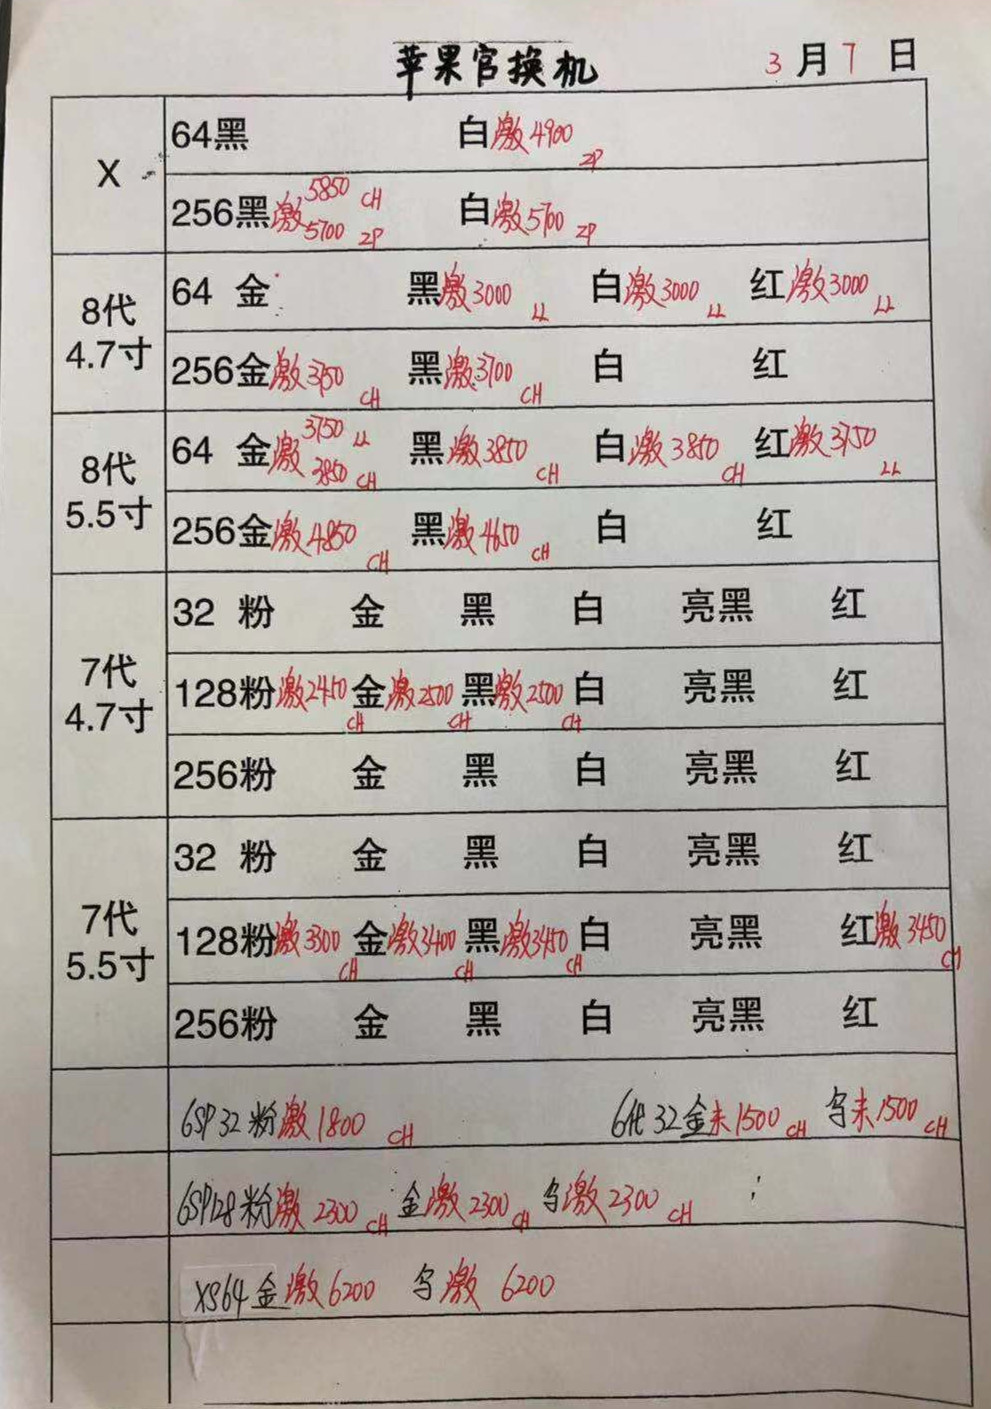 苹果官换机 3月7日
X
64黑 白激4900 ZP
256黑激5850 CH 5700 ZP 白激5700 ZP
8代
4.7寸
64 金 黑激3000 LL 白激3000 LL 红激3000 LL
256金激3750 CH 黑激3700 CH 白 红
8代
5.5寸
64 金激3750 LL 3850 CH 黑激3850 CH 白激3850 CH 红激3750 LL
256金激4850 CH 黑激4650 CH 白 红
7代
4.7寸
32 粉 金 黑 白 亮黑 红
128粉激2450 CH 金激2500 CH 黑激2500 CH 白 亮黑 红
256粉 金 黑 白 亮黑 红
7代
5.5寸
32 粉 金 黑 白 亮黑 红
128粉激3300 CH 金激3400 CH 黑激3450 CH 白 亮黑 红激3450 CH
256粉 金 黑 白 亮黑 红
6SP32粉激1800 CH 6代32金未1500 CH 乌未1500 CH
6SP128粉激2300 CH 金激2300 CH 乌激2300 CH
XS64金激6200 乌激6200